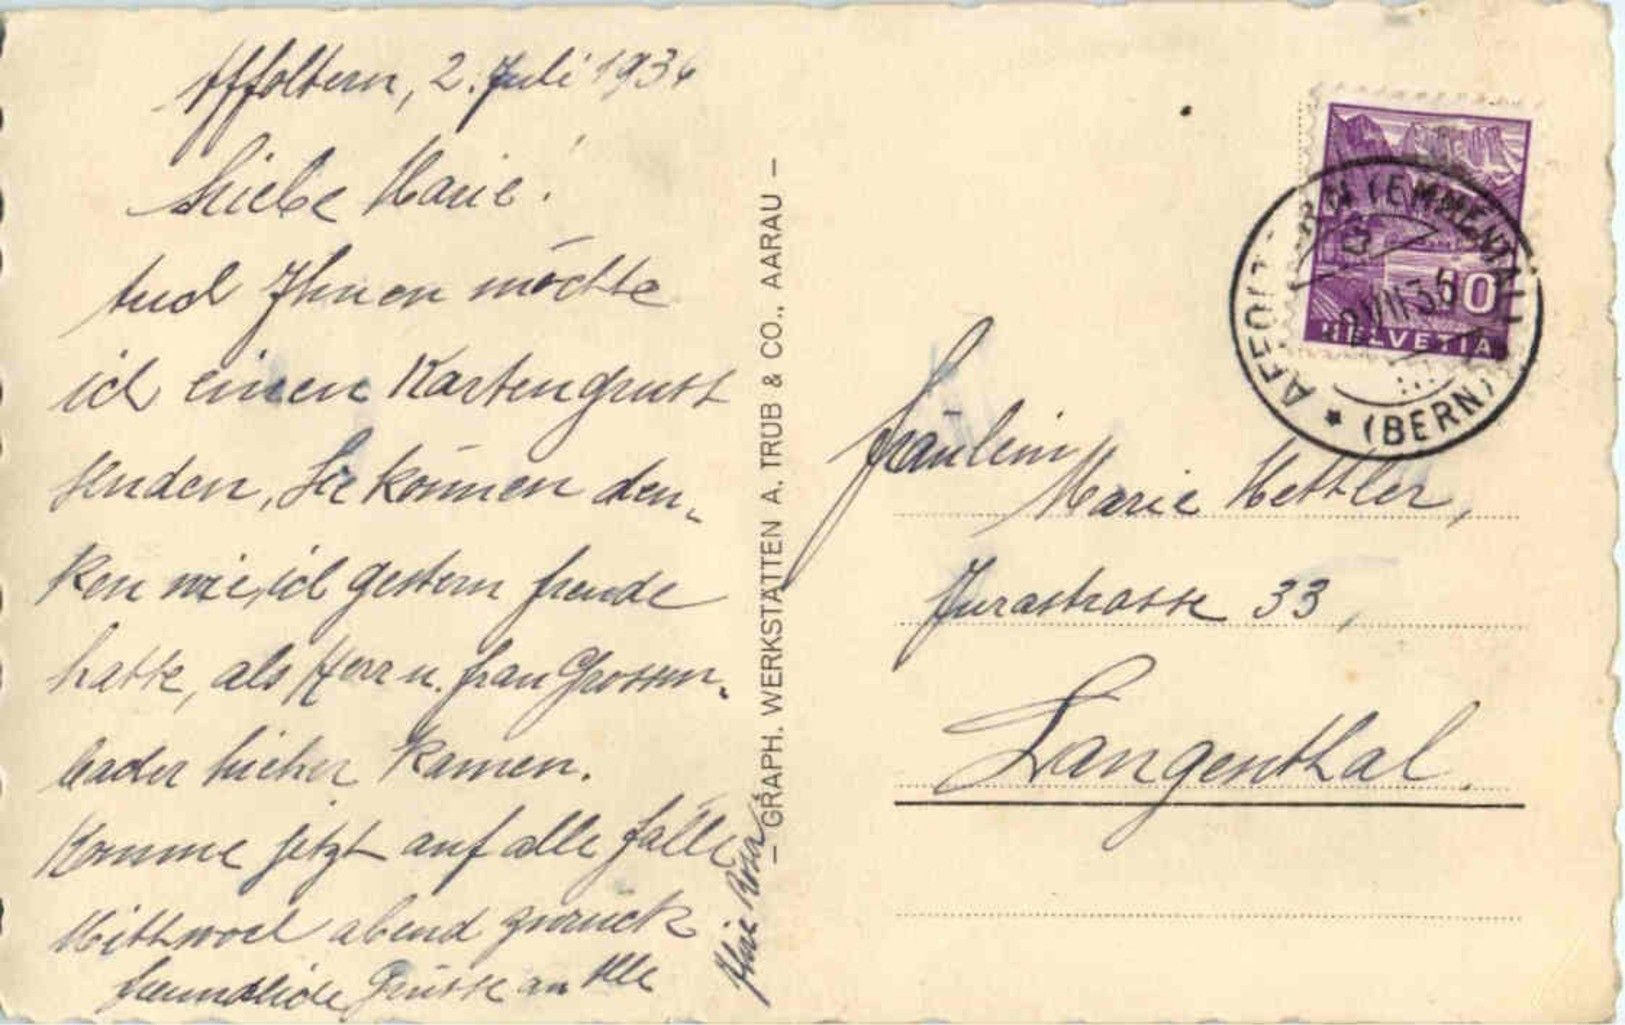 Affoltern, 2. Juli 1936
Liebe Marie!
Auch Ihnen möchte
ich einen Kartengruss
senden, Sie können den-
ken wie ich gestern freude
hatte, als Herr u. frau Grossen-
bacher hieher kamen.
Komme jetzt auf alle fälle
Mittwoch abend zurück
freundliche Grüsse an Alle
Ihre Rosa
– GRAPH. WERKSTÄTTEN A. TRÜB & CO., AARAU –
HELVETIA
10
AFFOLTERN (EMMENTAL)
(BERN)
Fräulein
Marie Hettler,
Jurastrasse 33,
Langenthal.